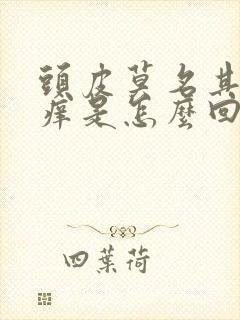 頭皮莫名其
痒是怎麼回
四葉荷